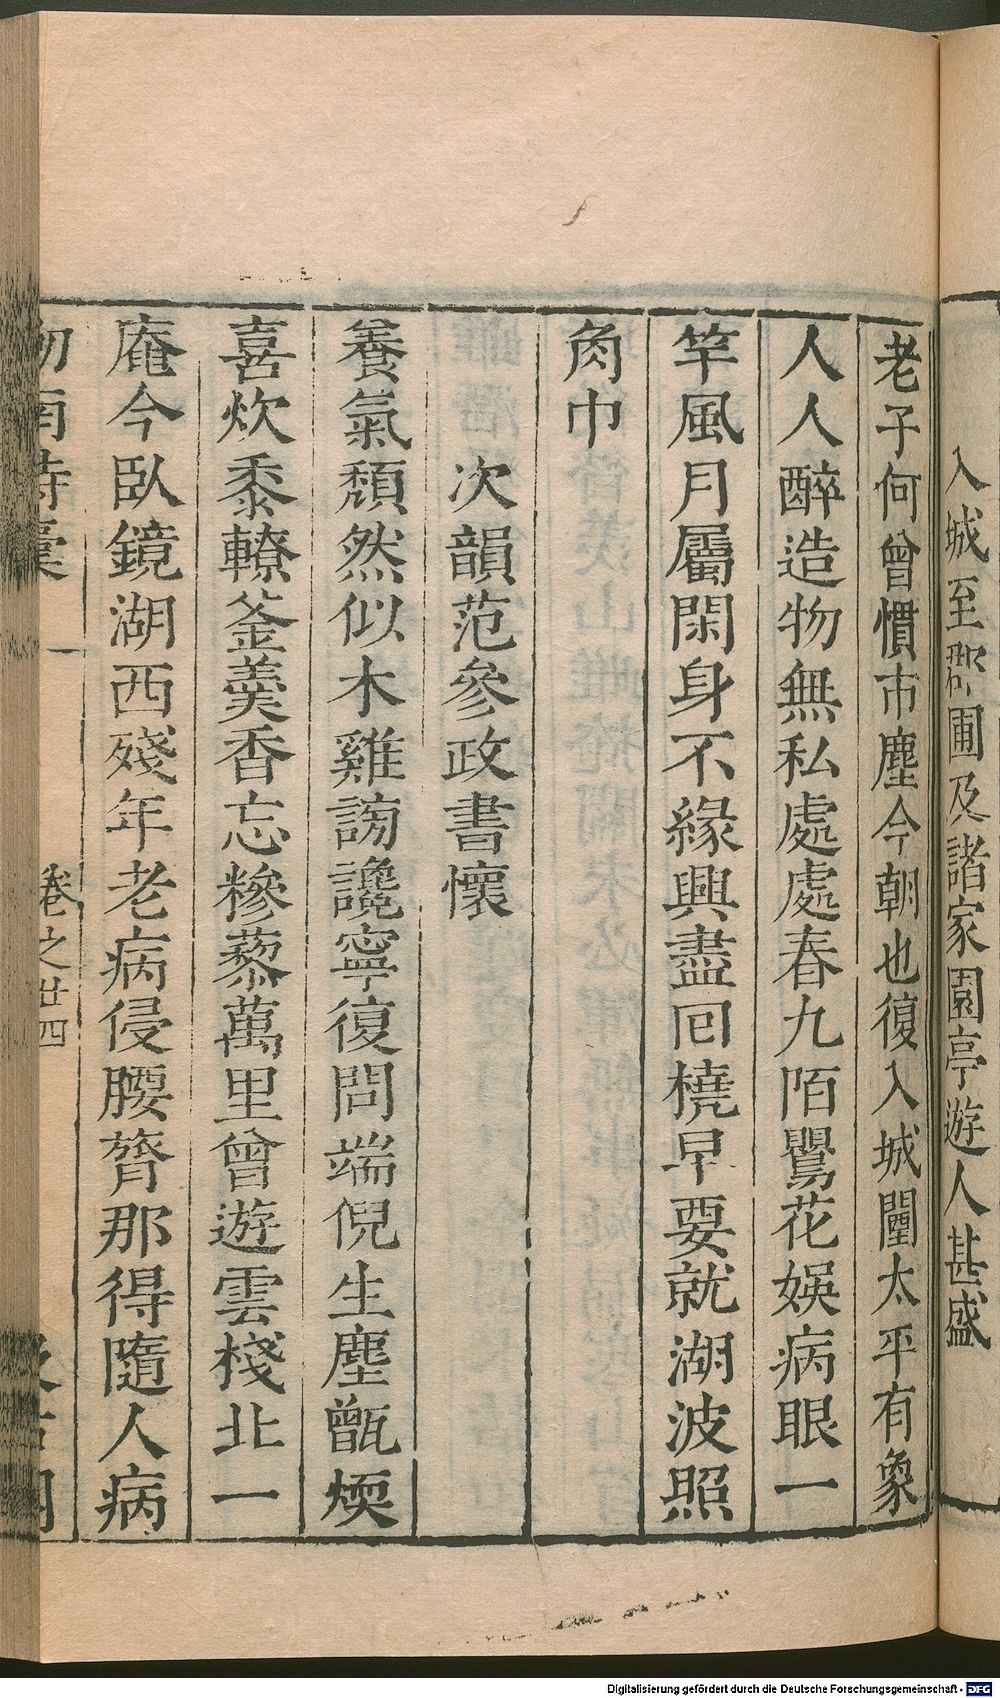 入城至郡圃及諸家園亭遊人甚盛
老子何曾慣市塵今朝也復入城闉太平有象
人人醉造物無私處處春九陌鸎花娛病眼一
竿風月屬閑身不緣興盡囘橈早要就湖波照
角巾
次韻范參政書懷
養氣頹然似木雞謗讒寧復問端倪生塵甑煗
喜炊黍轑釜羹香忘糝藜萬里曾遊雲棧北一
庵今臥鏡湖西殘年老病侵腰膂那得隨人病
劍南詩稾 卷之廿四 汲古閣
Digitalisierung gefördert durch die Deutsche Forschungsgemeinschaft - DFG